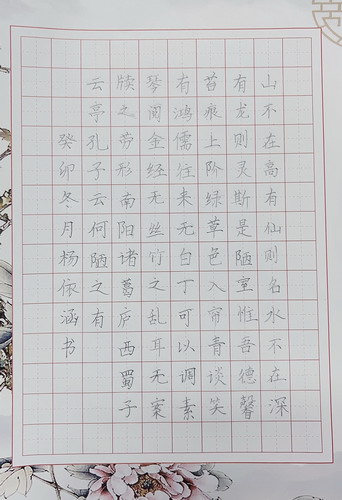 山不在高有仙则名水不在深
有龙则灵斯是陋室惟吾德馨
苔痕上阶绿草色入帘青谈笑
有鸿儒往来无白丁可以调素
琴阅金经无丝竹之乱耳无案
牍之劳形南阳诸葛庐西蜀子
云亭孔子云何陋之有
癸卯冬月杨依涵书